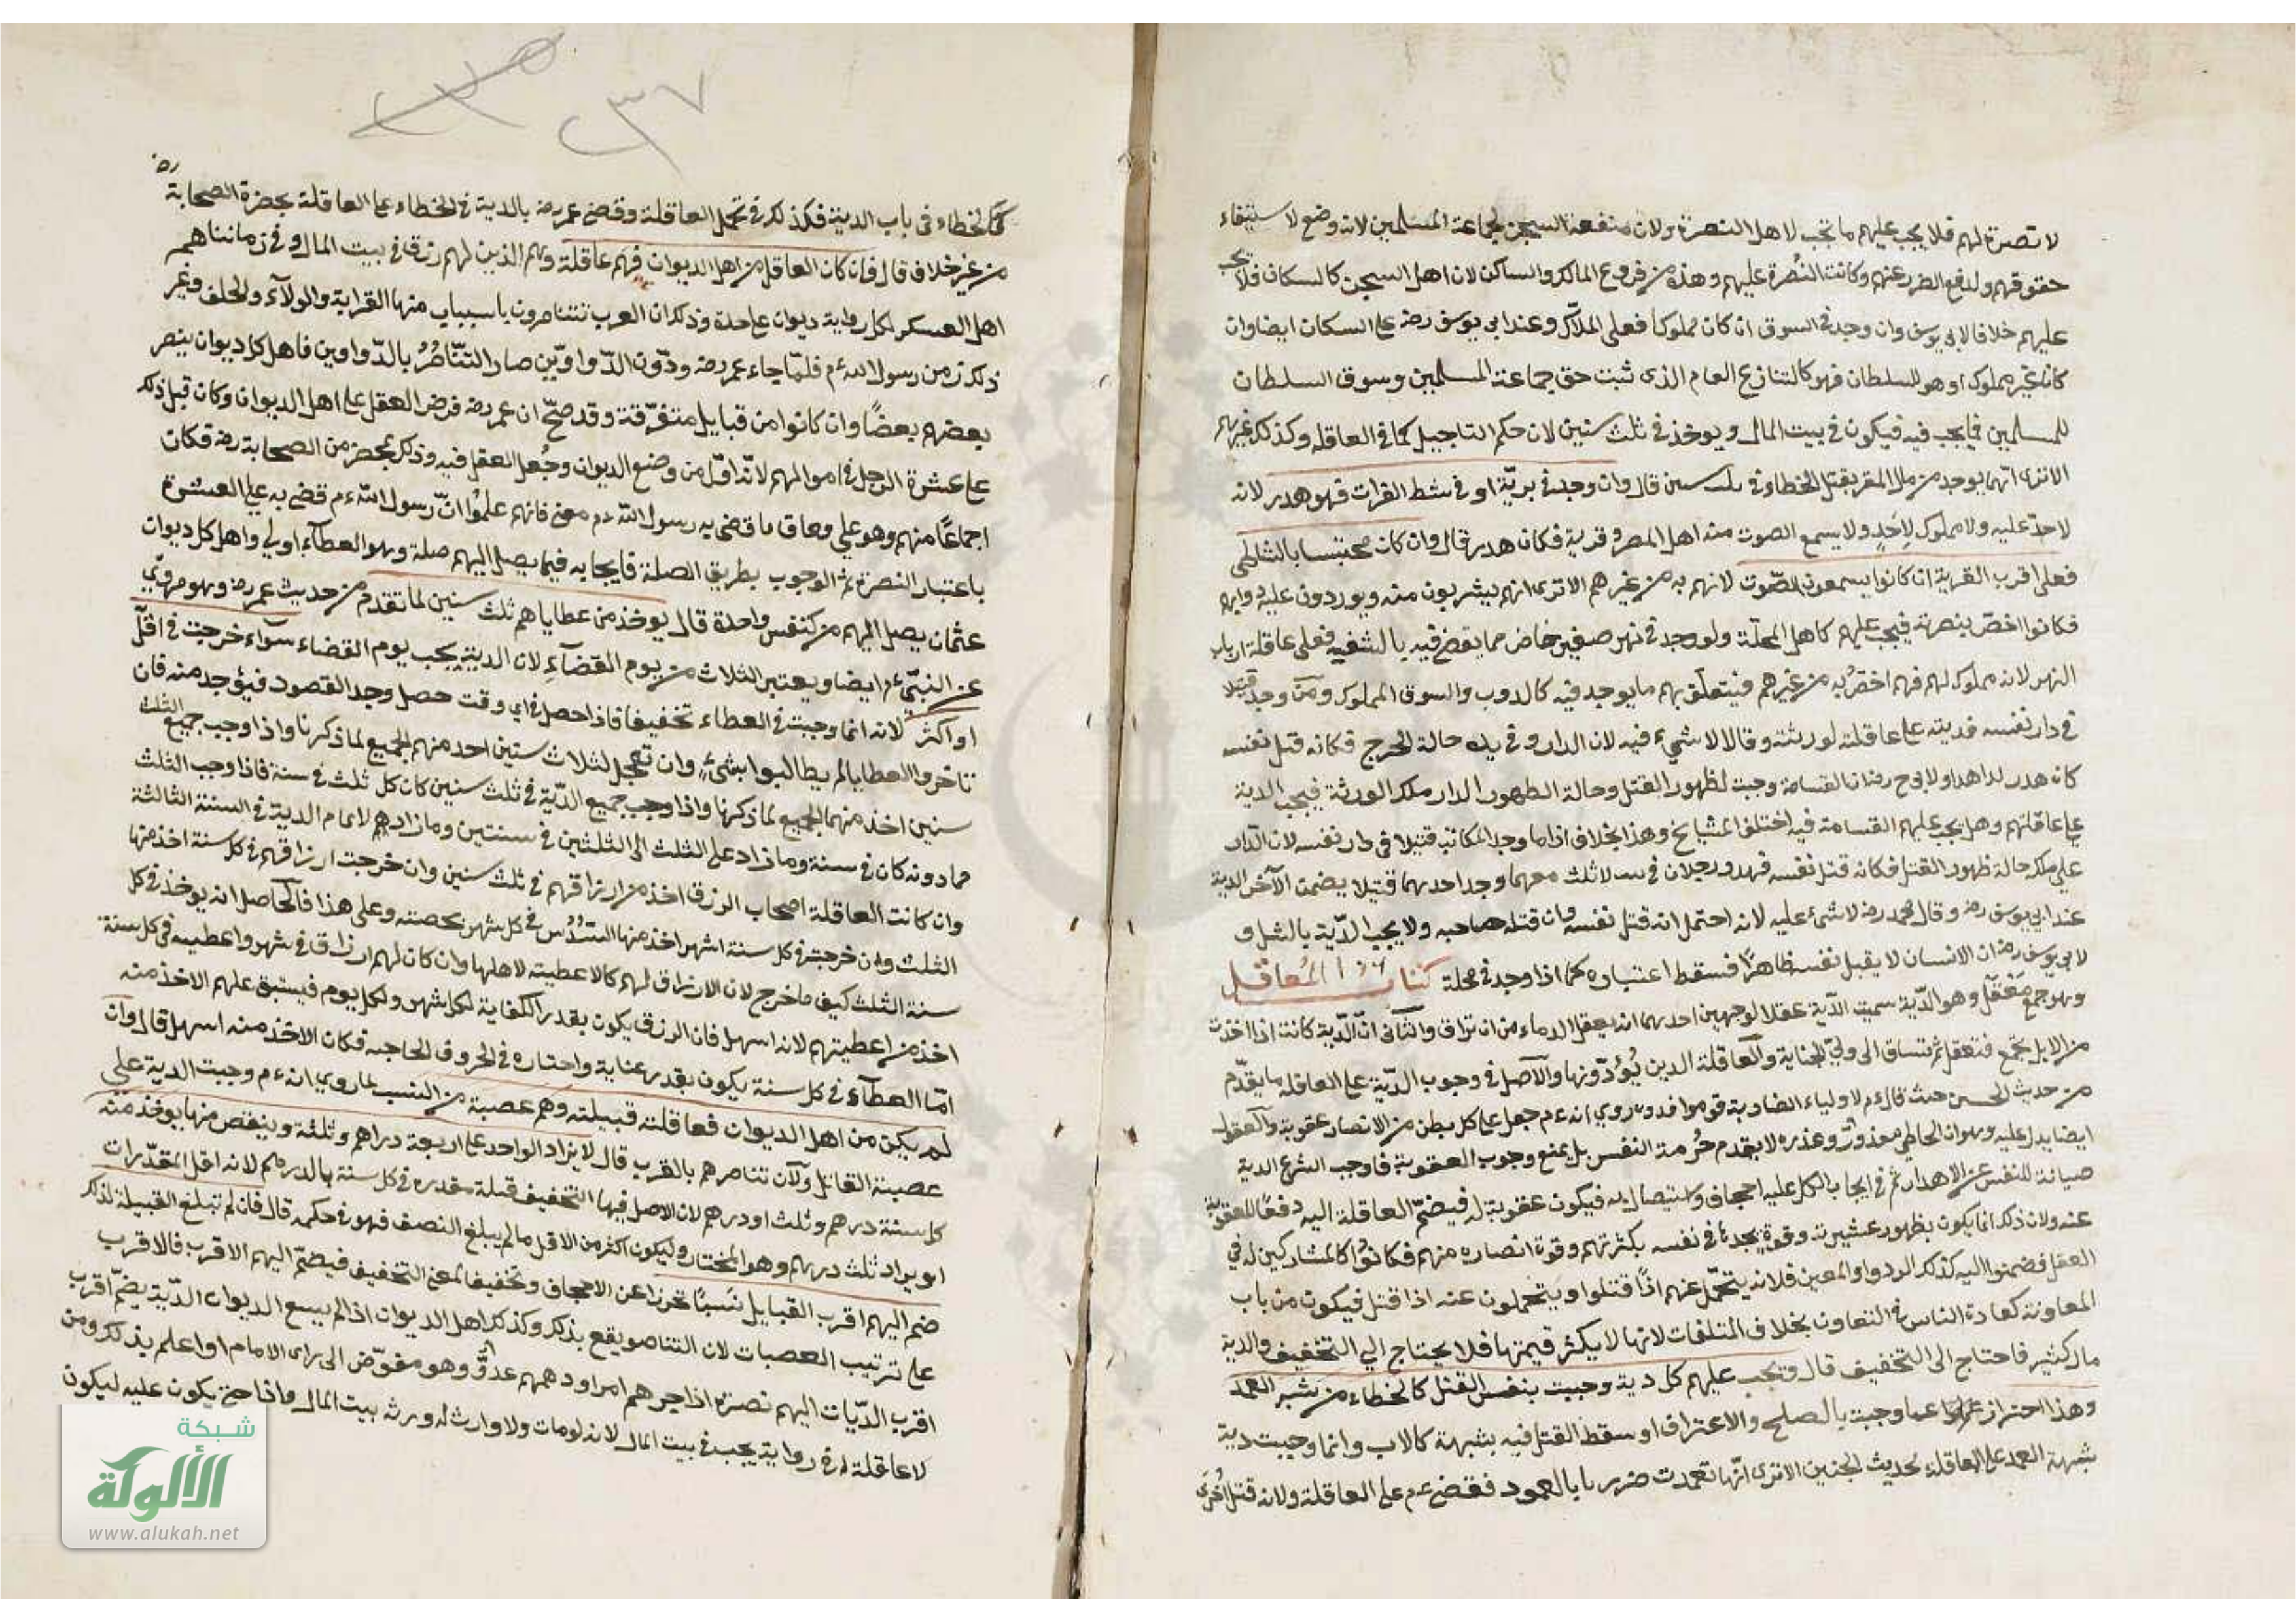 لا نصرة لهم فلا يجب عليهم ما تجب لاهل النصرة ولان منفعة السجن لجماعة المسلمين لانه وضع لاستيفاء
حقوقهم ولدفع الضرر عنهم وكانت النُصرة عليهم وهذه من فروع المالك والساكن لان اهل السجن كالسكان فلا يجب
عليهم خلافا لابي يوسف وان وجد في السوق ان كان مملوكا فعلى الملاك وعند ابي يوسف رضه على السكان ايضا وان
كان غير مملوك او هو للسلطان فهو كالشارع العام الذى ثبت حق جماعة المسلمين وسوق السلطان
للمسلمين فما يجب فيه فيكون في بيت المال ويوخذ في ثلث سنين لان حكم التاجيل كما في العاقله وكذلك غيرهم
الاترى انها يوجد من مال المقر بقتل الخطاء في سنين قال وان وجد في بريّة او في شط الفرات فهو هدر لانه
لاحد عليه ولا مملوك لِاَحَدٍ ولا يسمع الصوت منه اهل المصر وقرية فكان هدر قال وان كان محتبسا بالشاطى
فعلى اقرب القرية ان كانوا يسمعون الصّوت لانهم به من غيرهم الاترى انهم يشربون منه ويوردون عليه دوابهم
فكانوا اخصّ بنصرته فيجب عليهم كاهل المحلّة ولو وجد في نهر صغير خاص مما يقضي فيه بالشفعه فعلى عاقلة ارباب
النهر لانه مملوك لهم فهم اخصُّ به من غيرهم فيتعلق بهم ما يوجد فيه كالدوب والسوق المملوك ومن وجد قتيلا
في دار نفسه فديته على عاقلته لورثته وقالا لا شيء فيه لان الدار في يده حالة الجرح فكانه قتل نفسه
كان هدر لداهدا ولابي ح رضه ان القسامة وجبت لظهور القتل وحالة الظهور الدار ملك الورثة فيجب الدية
على عاقلتهم وهل يجب عليهم القسامة فيه اختلف المشايخ وهذا بخلاف اذا ما وجد المكاتب قتيلا في دار نفسه لان الدار
على ملكه حالة ظهور القتل فكانه قتل نفسه فهدر ورجلان في لا ثلث معهما وجد احدهما قتيلا يضمن الآخر الدية
عند ابي يوسف رضه وقال محمد رضه لا شيء عليه لانه احتمل انه قتل نفسه وان قتله صاحبه ولا يجب الدّية بالشك و
لابي يوسف رضه ان الانسان لا يقبل نفسه ظاهرًا فسقط اعتباره كما اذا وجد في محلة كتاب المعاقل
وهو جمع مَعْقل وهو الدّية سميت الدّية عقلا لوجهين احدهما انه يعقل الدماء من ان تراق والثانى انّ الدّية كانت اذا اخذت
من الابل تجمع فتعقل ثم تساق الى وليّ الجناية والعاقلة الدين يُؤدّونها والآصل في وجوب الدّية على العاقله ما يقدّم
من حديث الحسين حيث قال ءم لاولياء الضاربة قوموا فدوه وروي انه ءم جعل على كل بطن من الانصار عقوبة والعقول
ايضا يدل عليه وهو ان الخاطي معذورٌ وعذره لا يقدم حُرمة النفس بل يمنع وجوب العقوبة فاوجب الشرع الدية
صيانة للنفس عن الاهدار ثم في ايجاب الكل عليه اجحاف واستيصال به فيكون عقوبة له فيضمّ العاقلة اليه دفعًا للعقوبة
عنه ولان ذلك انما يكون بظهور عشيرته وقوةٍ يجدها في نفسه بكثرتهم وقوة انصاره منهم فكانُوا كالمشاركين له في
العقل فضمنوا اليه كذلك الردوا والمعين فلانه يتحمّل عنهم اذا قتلوا ويتحملون عنه اذا قتل فيكون من باب
المعاونة كعادة الناس في التعاون بخلاف المتلفات لانها لا يكثر قيمتها فلا يحتاج الي التخفيف والدية
مال كثير فاحتاج الى التخفيف قال وتجب عليهم كل دية وجبت بنفس القتل كالخطاء من شبه العمد
وهذا احتراز عما وجبت بالصلح والاعتراف او سقط القتل فيه بشبهة كالاب وانما وجبت دية
شبهة العمد على العاقله لحديث الجنين الاترى انّها تعمدت ضربها بالعمود فقضى ءم على العاقلة ولانه قتل اُخرى
٣٧
كالخطاء في باب الدية فكذلك في تحمل العاقلة وقضى عمر رضه بالدية في الخطاء على العاقلة بحضرة الصحابة رضه
من غير خلاف قال فان كان العاقل من اهل الديوان فهم عاقلة وهم الذين لهم رزق في بيت المال وفي زماننا هم
اهل العسكر لكل راية ديوان على حدة وذلك ان العرب تتناصرون باسباب منها القرابة والولآء والحلف وغير
ذلك زمن رسول الله ءم فلمّا جاء عمر رضه ودّون الدّواوين صار التّناصُرُ بالدّواوين فاهل كل ديوان ينصر
بعضهم بعضًا وان كانوا من قبايل متفرّقة وقد صحّ ان عمر رضه فرض العقل على اهل الديوان وكان قبل ذلك
على عشرة الرجل في اموالهم لانّه اوّل من وضع الديوان وجُعل العقل فيه وذلك بمحضر من الصحابة رضه فكان
اجماعًا منهم وهو على وفاق ما قضى به رسول الله ءم معنى فانهم علمُوا انّ رسول الله ءم قضى به على العشرة
باعتبار النصرة ثم الوجوب بطريق الصلة فايجابه فيما يصل اليهم صلة وهو العطآء اولي واهل كل ديوان
عثمان يصل اليهم من كنفس واحدة قال يوخذ من عطاياهم ثلث سنين لما تقدم من حديث عمر رضه وهو مروي
عن النبيّ ءم ايضا ويعتبر الثلاث من يوم القضآءِ لان الدية يجب يوم القضاء سوآء خرجت في اقلّ
او اكثر لانه انما وجبت في العطاء تخفيفا فاذا احصل في اي وقت حصل وجد القصود فيؤخد منه فان
تاخروا العطايا لم يطالبوا بشيءٍ وان تعجل لثلاث سنين احد منهم الجميع لما ذكرنا واذا وجب جميع الثلث
سنين اخذ منهما الجميع لما ذكرنا واذا وجب جميع الدّية في ثلث سنين كان كل ثلث في سنة فاذا وجب الثلث
فما دونه كان في سنة وما زاد على الثلث الى الثلثين في سنتين وما زاد لاتمام الدية في السنة الثالثة
وان كانت العاقلة اصحاب الرزق اخذ من ارزاقهم في ثلث سنين وان خرجت ارزاقهم في كل سنة اخذ منها
الثلث وان خرجت في كل سنة اشهر اخذ منها السُّدُس في كل شهر بحصته وعلى هذا فالحاصل انه يوخذ في كل
سنة الثلث كيف ما خرج لان الارزاق لهم كالاعطيته لاهلها وان كان لهم ارزاق في شهر واعطيه في كل سنة
اخذ من اعطيتهم لانه اسهل فان الرزق يكون بقدر الكفاية لكل شهر ولكل يوم فيستبق عليهم الاخذ منه
امّا العطآء في كل سنة يكون بقدر عنايه واحتاره في الحروف الحاجيه فكان الاخذ منه اسهل قال وان
لم يكن من اهل الديوان فعاقلته قبيلته وهم عصبة من النسب لما روي انه ءم وجبت الدية على
عصبة القاتل ولآن تناصرهم بالقرب قال لا يزاد الواحد على اربعة دراهم وثلثة وينقص منها يوخذ منه
كل سنة درهم وثلث او درهم لان الاصل فيها التخفيف قبلة مقدره في كل سنة بالدرهم لانه اقل المقدّرات
او يراد ثلث درهم وهو المختار وليكون اكثر من الاقل ما لم يبلغ النصف فهو في حكمه قال فان لم تبلغ القبيلة لذلك
ضم اليهم اقرب القبايل نَسَبًا تحرزا عن الاجحاف وتخفيفا لمعنى التخفيف فيضمّ اليهم الاقرب فالاقرب
على ترتيب العصبات لان التناصر يقع بذلك وكذلك اهل الديوان اذا لم يسع الديوان الدّية يضمّ اقرب
اقرب الدّيات اليهم نصرة اذا حرهم امرا ودهمهم عدوٌّ وهو مفوّض الى راى الامام او اعلم بذلك ومن
لا عاقلة له في رواية يجب في بيت المال لانه لو مات ولا وارث له ورثه بيت المال فاذا جنى يكون عليه ليكون
شبكة
الألوكة
www.alukah.net